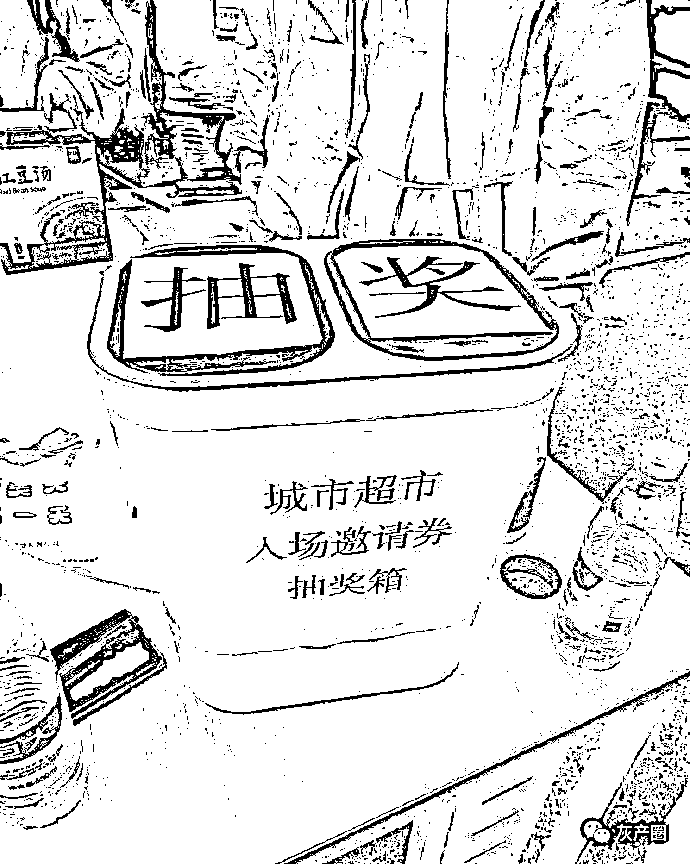 红豆汤
Red Bean Soup
抽奖
城市超市
入场邀请券
抽奖箱
灰产圈